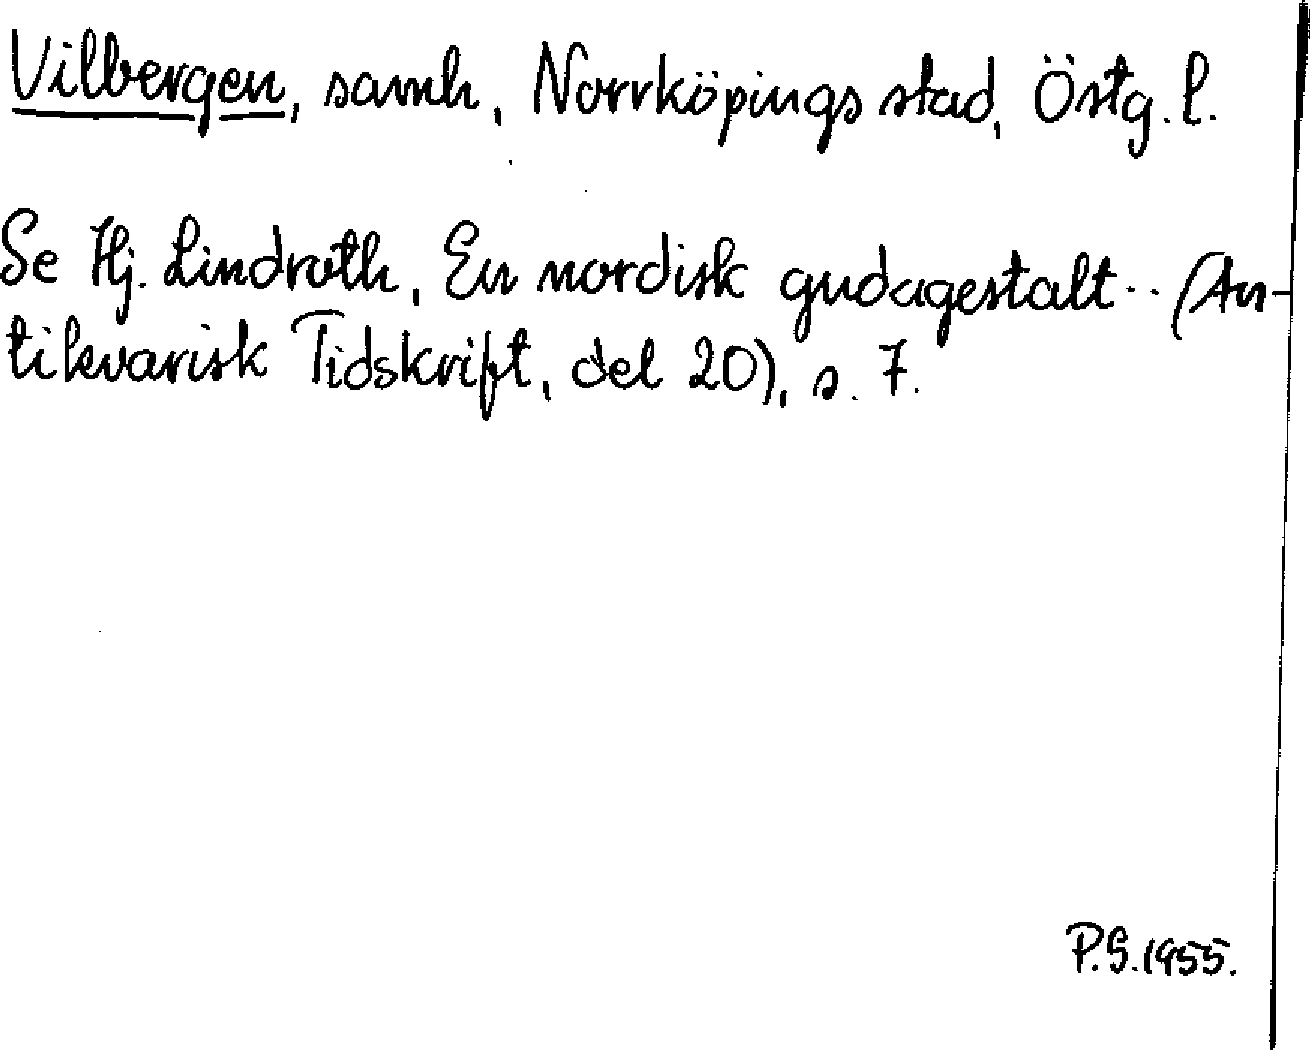 Vilbergen, samh, Norrköpings stad, Östg. l.
Se Hj. Lindroth, En nordisk gudagestalt... (An-
tikvarisk Tidskrift, del 20), s. 7.
P.G. 1955.